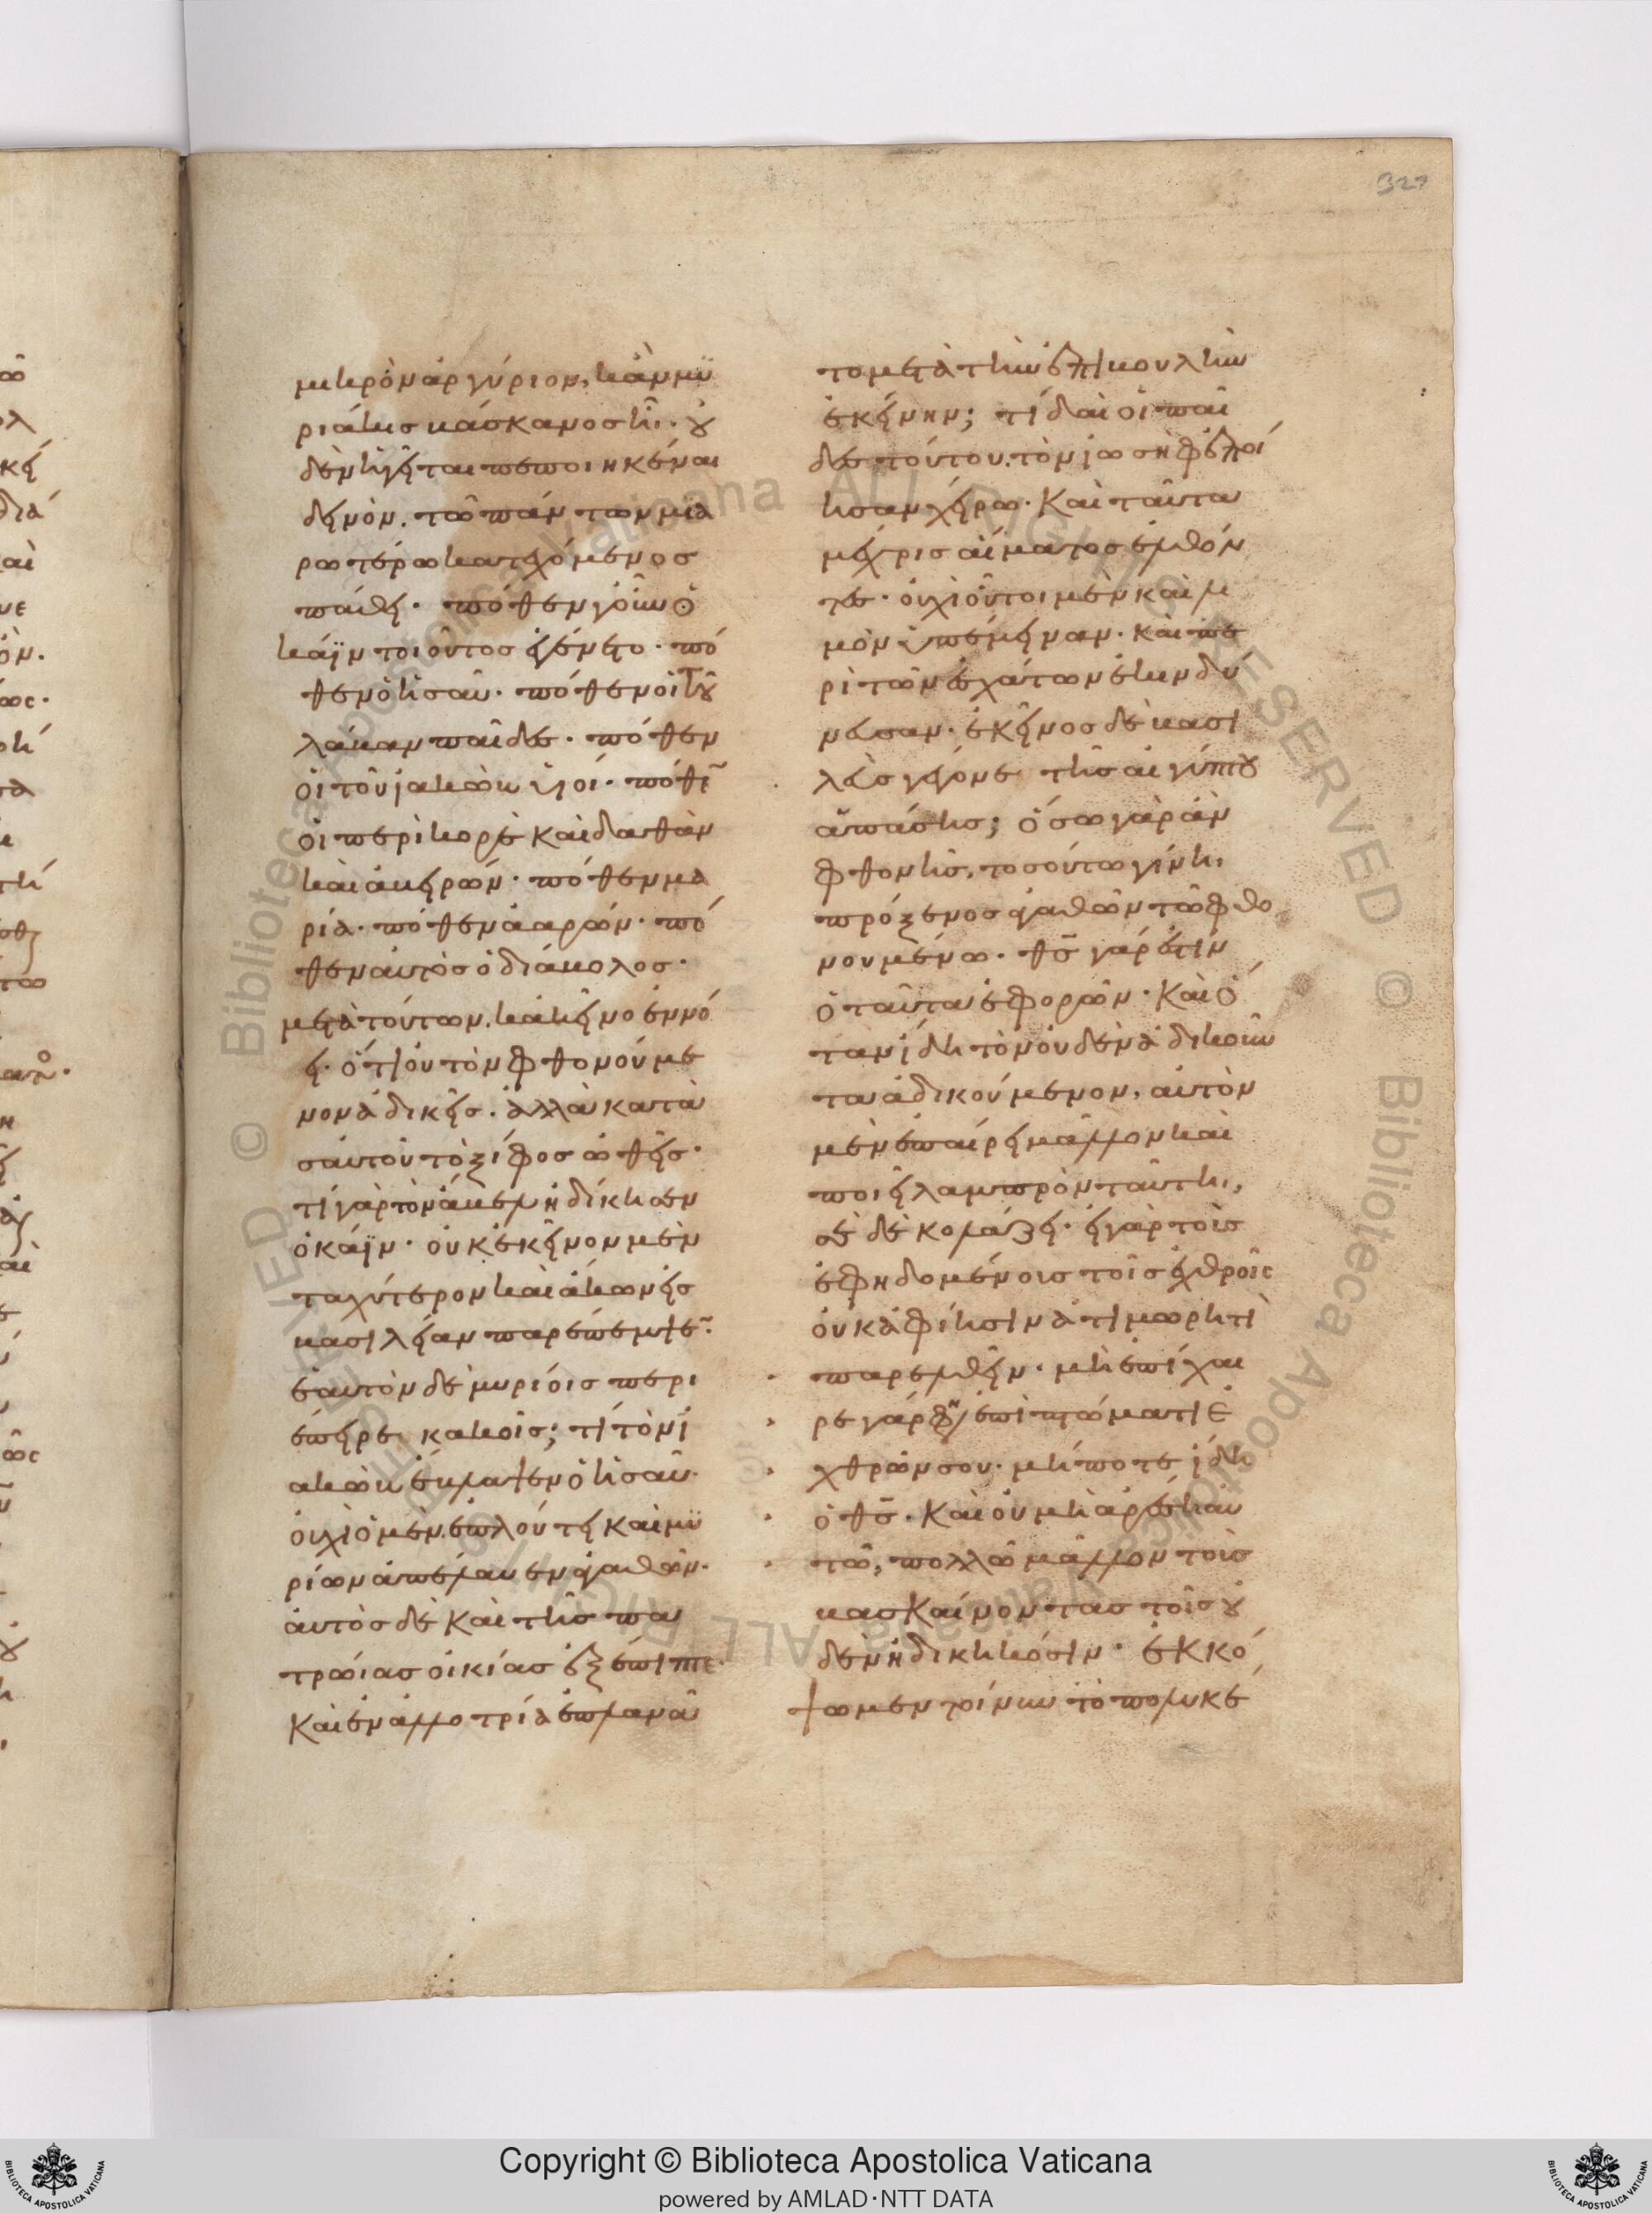 327
μικρὸν ἀργύριον, κἂν μυ
ριάκις βάσκανος ἦ. ου
δὲν ἡγῆται πεποιηκέναι
δεινόν. τῶ πάντων μια
ρωτέρω κατεχόμενος
πάθει. πόθεν γοῦν ὁ
κάϊν τοιοῦτος ἐγένετο. πό
θεν ὁ ἠσαῦ. πόθεν οἱ τοῦ
λάβαν παῖδες. πόθεν
οἱ τοῦ ἰακὼβ υἱοί. πόθεν
οἱ περὶ κορὲ καὶ δαθὰν
καὶ ἀβειρών. πόθεν μα
ρία. πόθεν ἀαρών. πό
θεν αὐτὸς ὁ διάβολος.
μετὰ τούτων, κἀκεῖνο ἐννό
ει. ὅτι οὐ τὸν φθονούμε
νον ἀδικεῖς. ἀλλὰ κατὰ
σαυτοῦ τὸ ξίφος ὠθεῖς.
τί γὰρ τὸν ἄβελ ἠδίκησεν
ὁ κάϊν. οὐκ ἐκεῖνον μὲν
ταχύτερον καὶ ἄκων εἰς
βασιλείαν παρέπεμψε.
ἑαυτὸν δὲ μυρίοις περι
έπειρε κακοῖς; τί τὸν ἰ
ακὼβ ἔβλαψεν ὁ ἠσαῦ.
οὐχὶ ὁ μὲν ἐπλούτει καὶ μυ
ρίων ἀπέλαυεν ἀγαθῶν.
αὐτὸς δὲ καὶ τῆς πα
τρώιας οἰκίας ἐξέπιπτε.
καὶ ἐν ἀλλοτρία ἐπλανᾶ
το μετὰ τὴν ἐπιβουλὴν
ἐκείνην; τί δαὶ οἱ παῖ
δες τούτου. τὸν ἰωσὴφ ἐποί
ησαν χείρω. καὶ ταῦτα
μέχρις αἵματος ἐλθόν
τες. οὐχὶ οὗτοι μὲν καὶ λι
μὸν ὑπέμειναν. καὶ πε
ρὶ τῶν ἐσχάτων ἐκινδύ
νευσαν. ἐκεῖνος δὲ βασι
λεὺς γέγονε τῆς αἰγύπτου
ἁπάσης; ὅσω γὰρ ἂν
φθονῆς, τοσούτω γίνη,
πρόξενος ἀγαθῶν τῶ φθο
νουμένω. θς γάρ ἐστιν
ὁ ταῦτα ἐφορῶν. καὶ ὅ
ταν ἴδη τὸν οὐδὲν ἀδικοῦν
τα ἀδικούμενον, αὐτὸν
μὲν ἐπαίρει μᾶλλον καὶ
ποιεῖ λαμπρὸν ταύτη,
σὲ δὲ κολάζει. εἰ γὰρ τοῖς
ἐφηδομένοις τοῖς ἐχθροῖς
οὐκ ἀφίησιν ἀτιμωρητὶ
παρελθεῖν. μὴ ἐπίχαι
ρε γάρ φη ἐπὶ πτώματι ἐ
χθρῶν σου. μήποτε ἴδη
ὁ θς. καὶ οὐ μὴ ἀρέση αὐ
τῶ, πολλῶ μᾶλλον τοῖς
βασκαίνοντας τοῖς οὐ
δὲν ἠδικηκόσιν. ἐκκό
ψωμεν τοίνυν τὸ πολυκέ
Copyright © Biblioteca Apostolica Vaticana
powered by AMLAD·NTT DATA